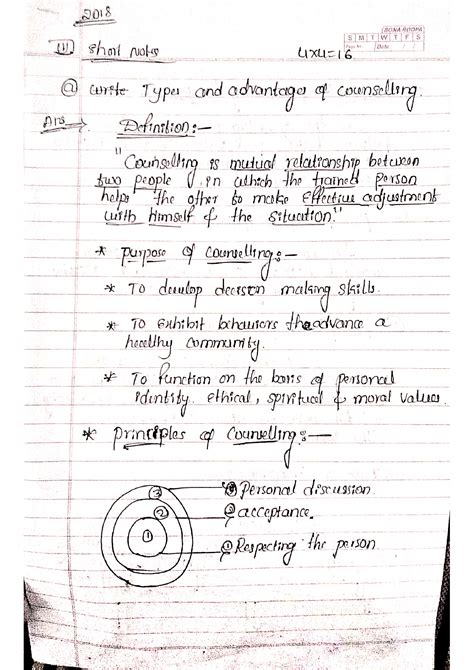 2018
BONA ROOPA
S M T W T F S
Page No. Date / /
III) Short Notes 4x4=16
(a) Write Types and advantages of counselling.
Ans → Definition:-
"Counselling is mutual relationship between
two people, in which the trained person
helps the other to make Effective adjustment
with himself & the situation."
* Purpose of Counselling:-
* To develop decision making skills.
* To Exhibit behaviors the advance a
healthy community.
* To function on the basis of personal
Identity. ethical, spiritual & moral values.
* Principles of Counselling:-
③ ③ Personal discussion
② ② acceptance.
① ① Respecting the person